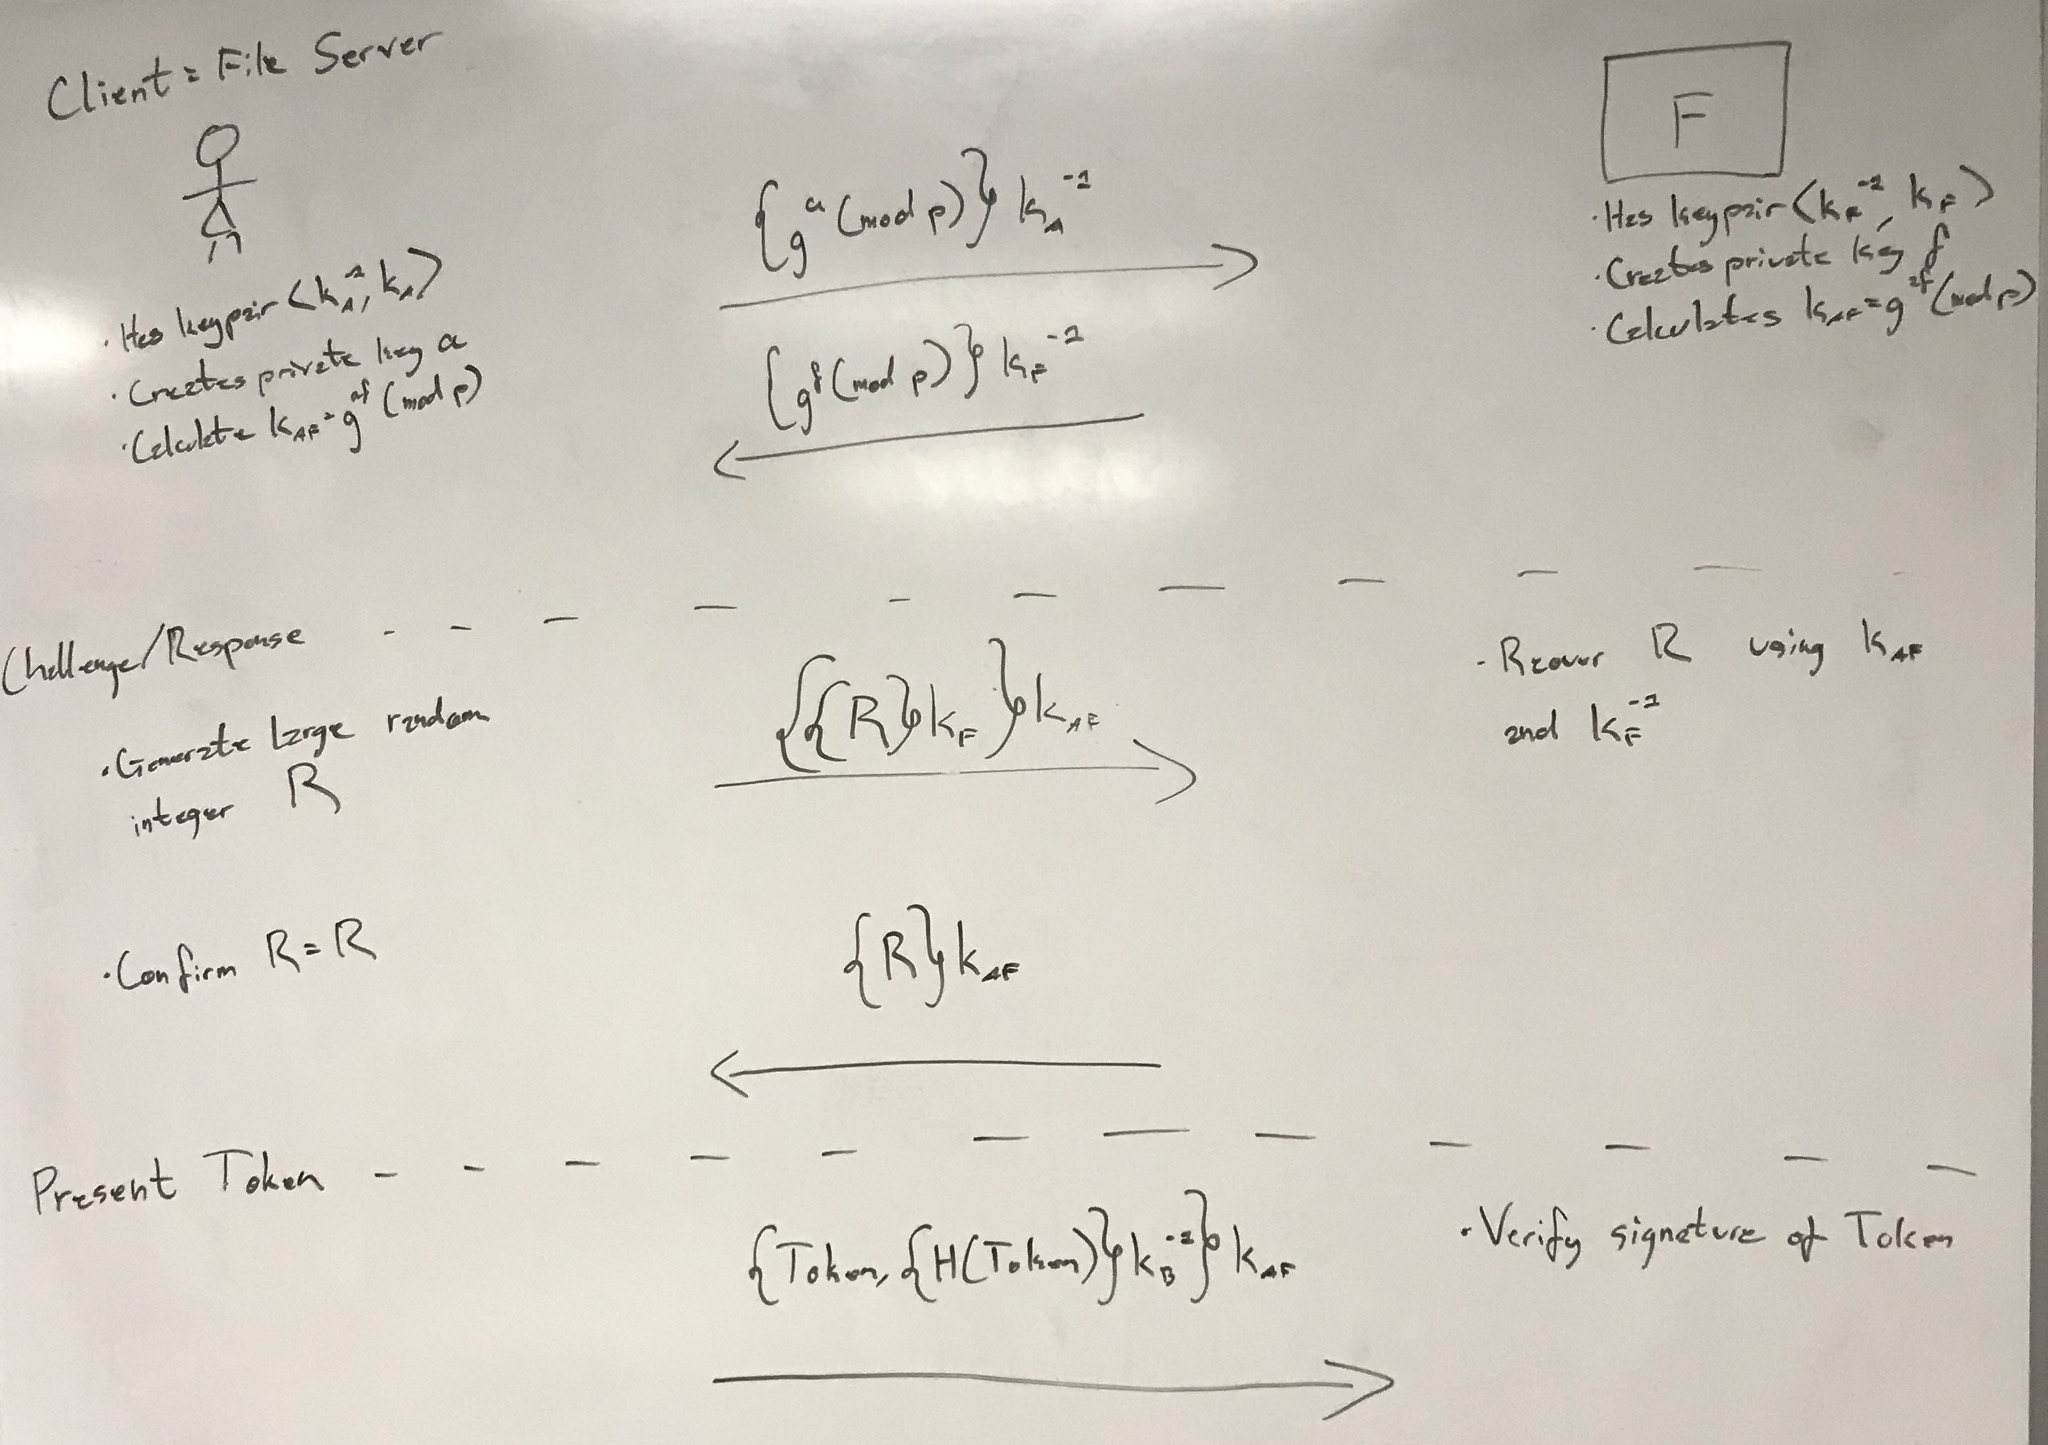 Client = File Server
F
{g^a (mod p)} k_A^-1
· Has keypair <k_A^-1, k_A>
· Creates private key a
· Calculate k_AF = g^af (mod p)
· Has keypair <k_F^-1, k_F>
· Creates private key f
· Calculates k_AF = g^af (mod p)
{g^f (mod p)} k_F^-1
Challenge/Response
· Generate large random
integer R
{{R} k_F} k_AF
· Recover R using k_AF
and k_F^-1
· Confirm R = R
{R} k_AF
Present Token
{Token, {H(Token)} k_B^-1} k_AF
· Verify signature of Token